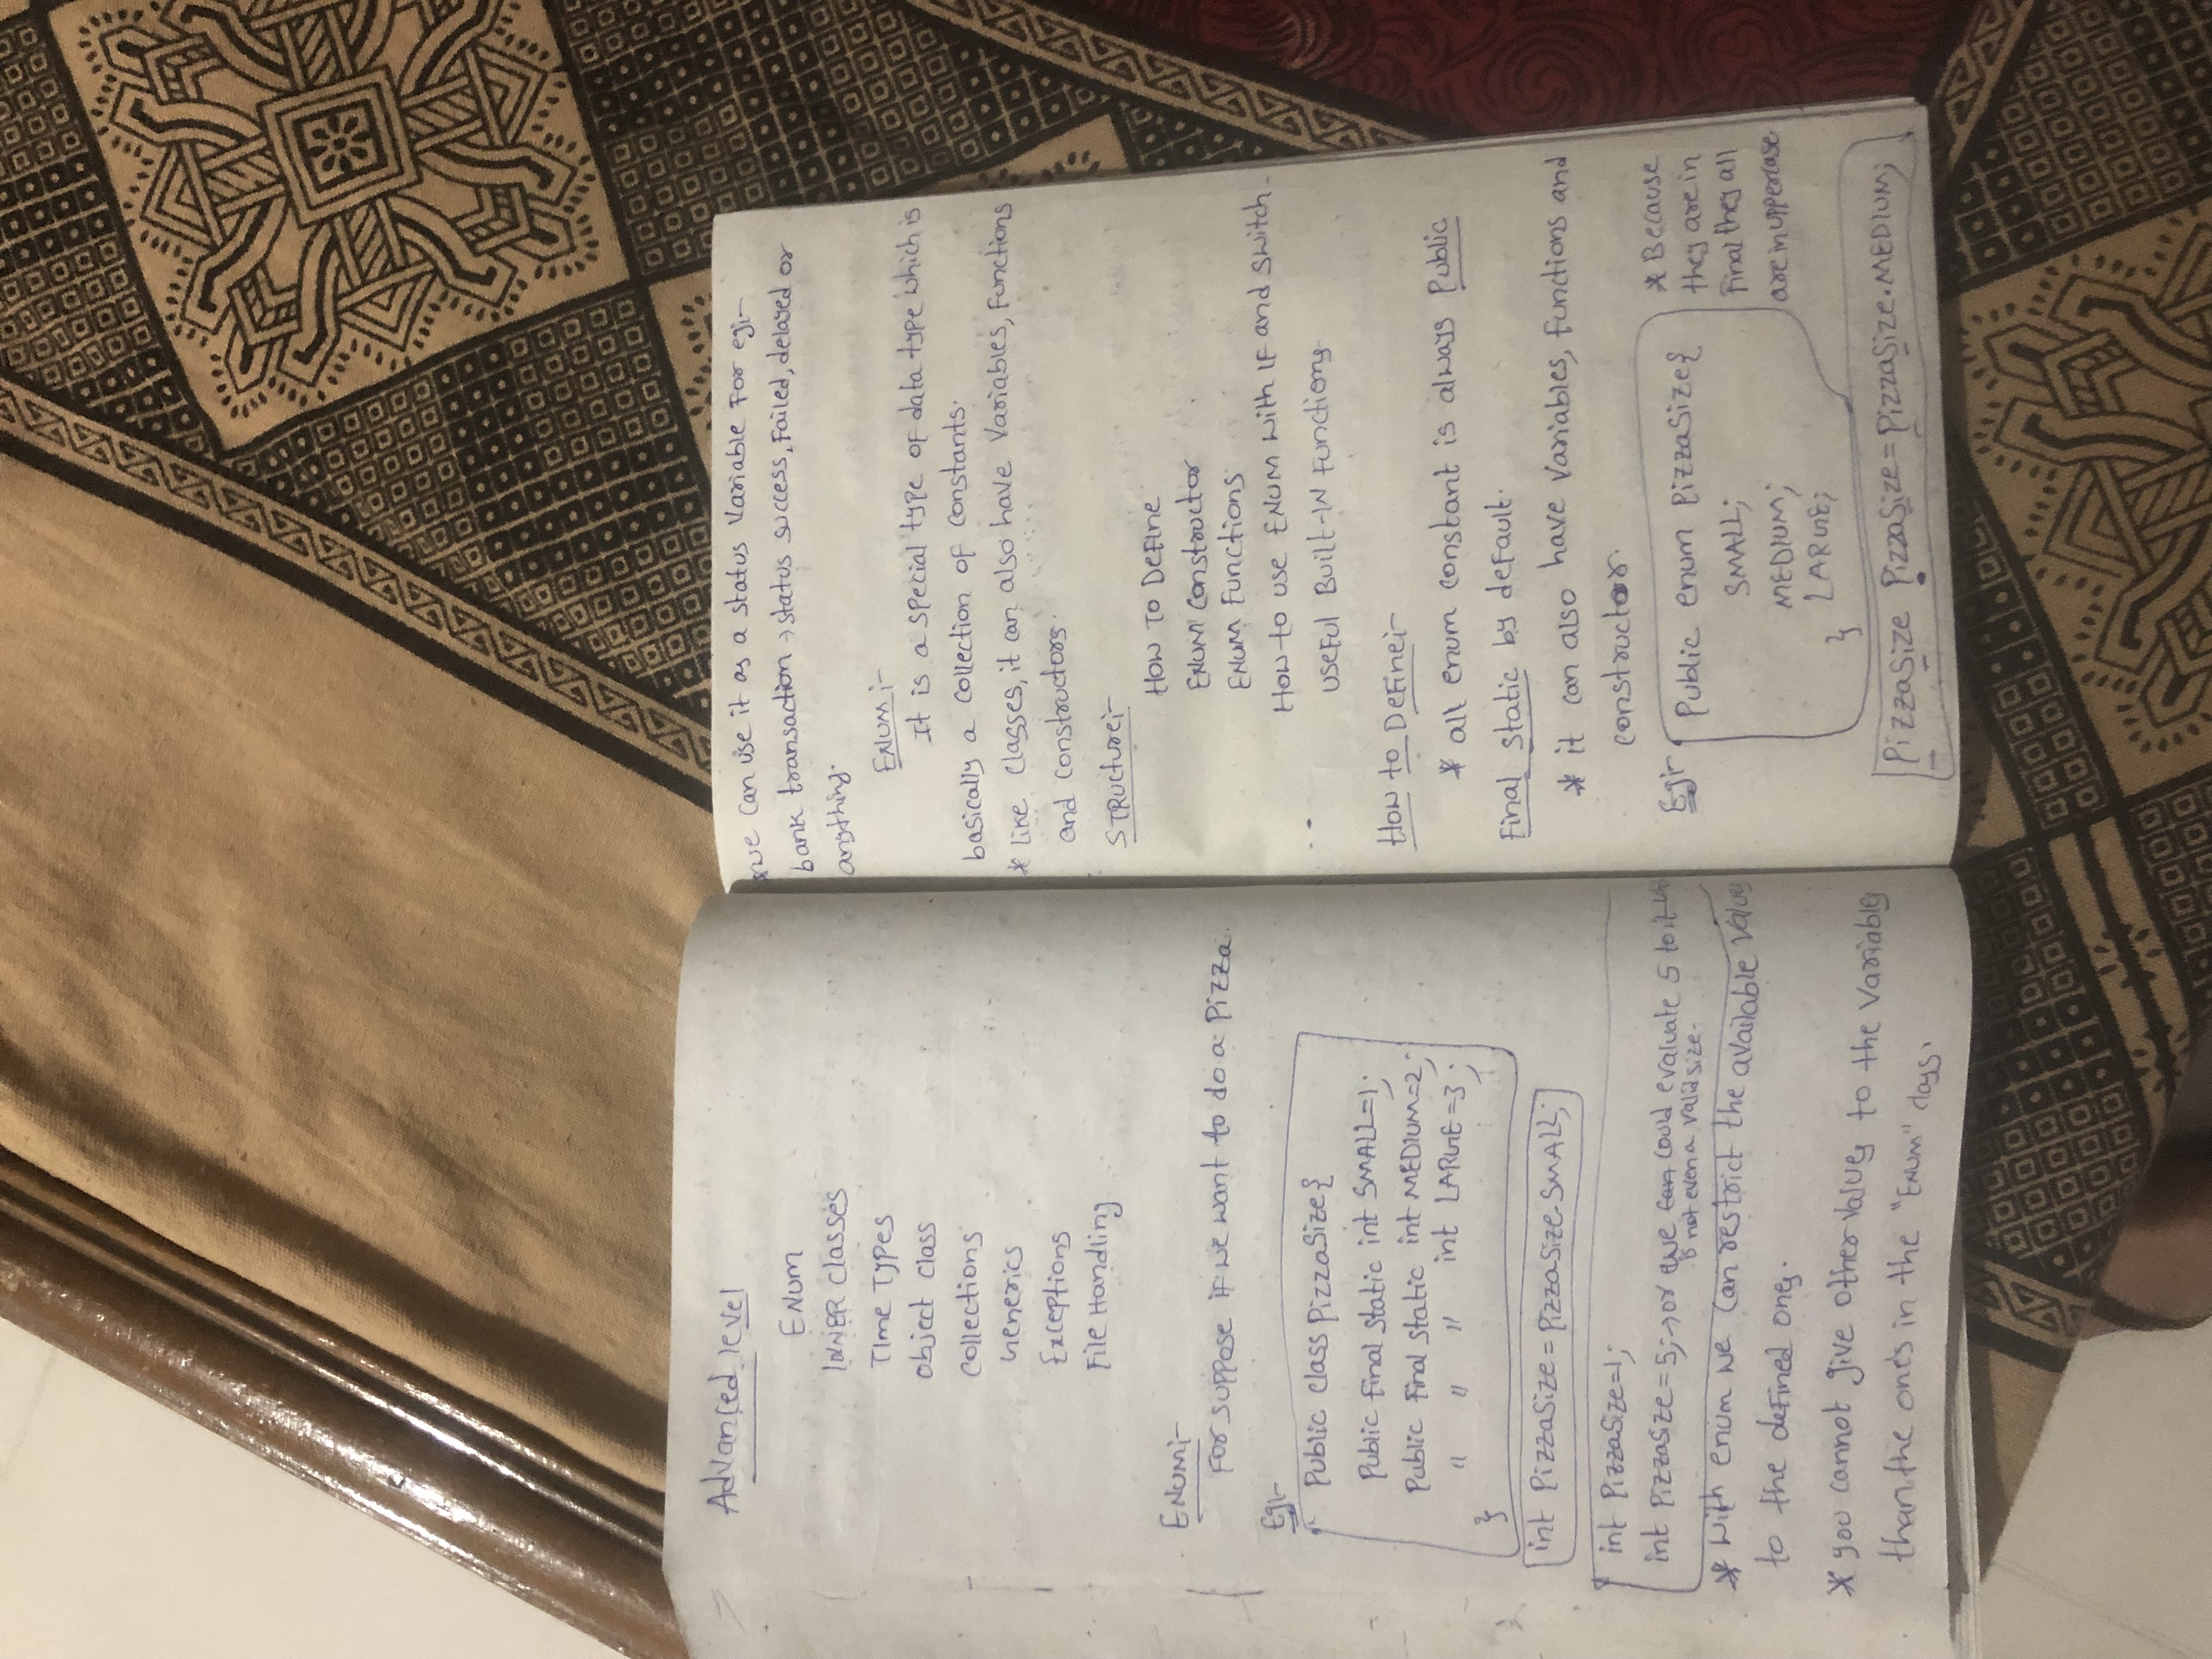 Advanced level
ENUM
INNER classes
Time Types
Object class
collections
Generics
Exceptions
File Handling
ENUM:-
For suppose if we want to do a Pizza.
Eg:-
Public class PizzaSize{
Public final static int SMALL=1;
Public final static int MEDIUM=2;
" " " int LARGE=3;
}
int PizzaSize = PizzaSize.SMALL;
int PizzaSize=1;
int PizzaSize=5;→or we can could evaluate 5 to it
is not even a valid size.
* With enum we can restrict the available values
to the defined ones.
* you cannot give other values to the variables
than the one's in the "ENUM" class.
we can use it as a status variable For eg:-
bank transaction → status success, Failed, delayed or
anything.
ENUM:-
It is a special type of data type which is
basically a collection of constants.
* like classes, it can also have variables, Functions
and constructors.
STRUcture:-
How To Define
ENUM Constructor
ENUM Functions
How to use ENUM with IF and switch.
useful Built-IN Functions
How to Define:-
* all enum constant is always Public
Final static by default.
* it can also have variables, functions and
constructor.
Eg:-
Public enum PizzaSize{
SMALL;
MEDIUM;
LARGE;
}
* Because
they are in
Final they all
are in uppercase
PizzaSize PizzaSize = PizzaSize.MEDIUM;